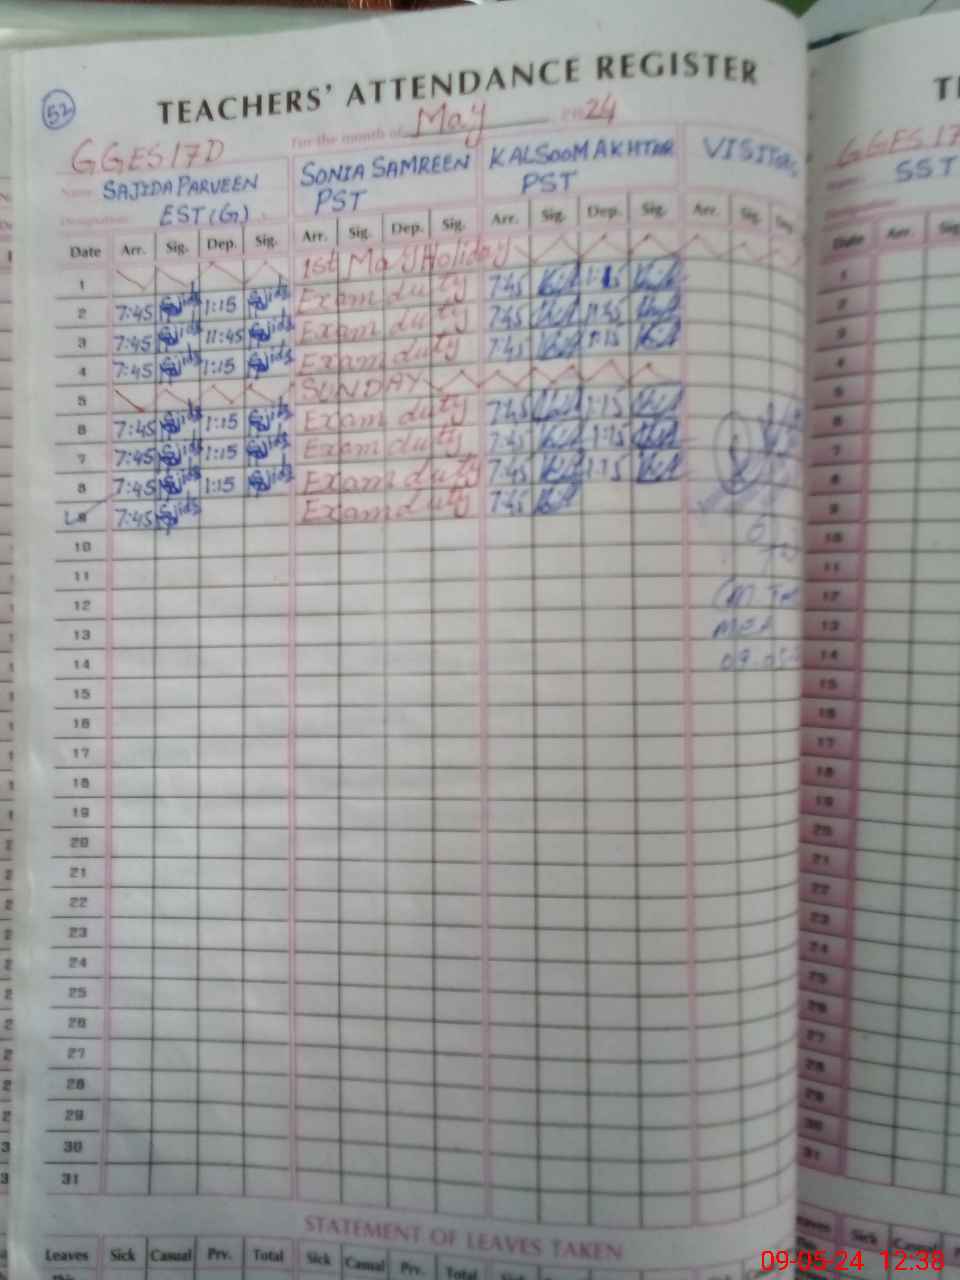 52
TEACHERS' ATTENDANCE REGISTER
For the month of May 24
GGES17D
Name SAJIDA PARVEEN SONIA SAMREEN KALSOOM AKHTAR VISITORS
Designation EST(G) PST PST
Date Arr. Sig. Dep. Sig. Arr. Sig. Dep. Sig. Arr. Sig. Dep. Sig. Arr. Sig.
1 1st May Holiday
2 7:45 Sajida 1:15 Sajida Exam duty 7:45 1:15
3 7:45 Sajida 11:45 Sajida Exam duty 7:45 11:45
4 7:45 Sajida 1:15 Sajida Exam duty 7:45 1:15
5 SUNDAY
6 7:45 Sajida 1:15 Sajida Exam duty 7:45 1:15
7 7:45 Sajida 1:15 Sajida Exam duty 7:45 1:15
8 7:45 Sajida 1:15 Sajida Exam duty 7:45 1:15
9 7:45 Sajida Exam duty 7:45
10
11
12
13 MEA
14
15
16
17
18
19
20
21
22
23
24
25
26
27
28
29
30
31
STATEMENT OF LEAVES TAKEN
Leaves Sick Casual Prv. Total Sick Casual Prv. Total Sick
GGES 17
SST
Date Arr.
1
2
3
4
5
6
7
8
9
10
11
12
13
14
15
16
17
18
19
20
21
22
23
24
25
26
27
28
29
30
31
Sick
09-05-24 12:38